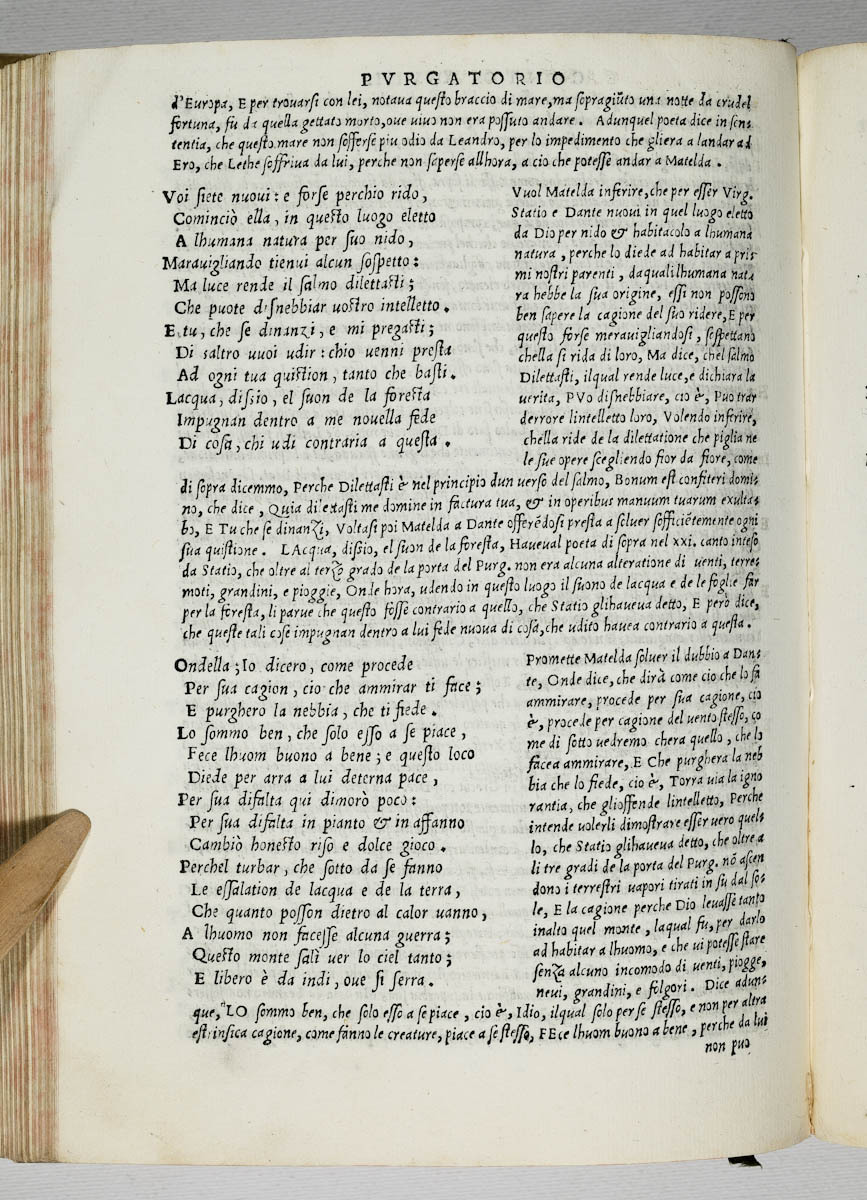 PVRGATORIO
d'Europa, E per trouarsi con lei, notaua questo braccio di mare, ma sopragiũto una notte da crudel
fortuna, fu da quella gettato morto, oue uiuo non era possuto andare. Adunquel poeta dice in sen-
tentia, che questo mare non sofferse piu odio da Leandro, per lo impedimento che gliera a landar ad
Ero, che Lethe soffriua da lui, perche non saperse allhora, a cio che potesse andar a Matelda.
Voi siete nuoui: e forse perchio rido,
Cominciò ella, in questo luogo eletto
A lhumana natura per suo nido,
Marauigliando tienui alcun sospetto:
Ma luce rende il salmo dilettasti;
Che puote disnebbiar uostro intelletto.
E tu, che se dinanzi, e mi pregasti;
Di saltro uuoi udir: chio uenni presta
Ad ogni tua quistion, tanto che basti.
Lacqua, dissio, el suon de la foresta
Impugnan dentro a me nouella fede
Di cosa, chi udi contraria a questa.
Vuol Matelda inferire, che per esser Virg.
Statio e Dante nuoui in quel luogo eletto
da Dio per nido & habitacolo a lhumana
natura, perche lo diede ad habitar a pri-
mi nostri parenti, daquali lhumana natu
ra hebbe la sua origine, essi non possono
ben sapere la cagione del suo ridere, E per
questo forse merauigliandosi, sospettano
chella si rida di loro, Ma dice, chel salmo
Dilettasti, ilqual rende luce, e dichiara la
uerita, PVo disnebbiare, cio è, Puo trar
derrore lintelletto loro, Volendo inferire,
chella ride de la dilettatione che piglia ne
le sue opere scegliendo fior da fiore, come
di sopra dicemmo, Perche Dilettasti è nel principio dun uerso del salmo, Bonum est confiteri domi-
no, che dice, Quia dilettasti me domine in factura tua, & in operibus manuum tuarum exulta-
bo, E TV che se dinanzi, Voltasi poi Matelda a Dante offerẽdosi presta a soluer sofficiẽtemente ogni
sua quistione. LAcqua, dissio, el suon de la foresta, Haueual poeta di sopra nel xxi. canto inteso
da Statio, che oltre al terzo grado de la porta del Purg. non era alcuna alteratione di uenti, terre-
moti, grandini, e pioggie, Onde hora, udendo in questo luogo il suono de lacqua e de le foglie far
per la foresta, li parue che questo fosse contrario a quello, che Statio glihaueua detto, E però dice,
che queste tali cose impugnan dentro a lui fede nuoua di cosa, che udito hauea contrario a questa.
Ondella; Io dicero, come procede
Per sua cagion, cio che ammirar ti face;
E purghero la nebbia, che ti fiede.
Lo sommo ben, che solo esso a se piace,
Fece lhuom buono a bene; e questo loco
Diede per arra a lui deterna pace,
Per sua difalta qui dimorò poco:
Per sua difalta in pianto & in affanno
Cambiò honesto riso e dolce gioco.
Perchel turbar, che sotto da se fanno
Le essalation de lacqua e de la terra,
Che quanto posson dietro al calor uanno,
A lhuomo non facesse alcuna guerra;
Questo monte salì uer lo ciel tanto;
E libero è da indi, oue si serra.
Promette Matelda soluer il dubbio a Dan-
te, Onde dice, che dirà come cio che lo fa
ammirare, procede per sua cagione, cio
è, procede per cagione del uento stesso, co
me di sotto uedremo chera quello, che lo
facea ammirare, E Che purghera la neb
bia che lo fiede, cio è, Torra uia la igno
rantia, che glioffende lintelletto, Perche
intende uolerli dimostrare esser uero quel-
lo, che Statio glihaueua detto, che oltre a
li tre gradi de la porta del Purg. nõ ascen
dono i terrestri uapori tirati in su dal so-
le, E la cagione perche Dio leuasse tanto
inalto quel monte, laqual fu, per darlo
ad habitar a lhuomo, e che ui potesse stare
senza alcuno incomodo di uenti, piogge,
neui, grandini, e folgori. Dice adun-
que, LO sommo ben, che solo esso a se piace, cio è, Idio, ilqual solo per se stesso, e non per altra
estrinsica cagione, come fanno le creature, piace a se stesso, FEce lhuom buono a bene, perche da lui
non puo